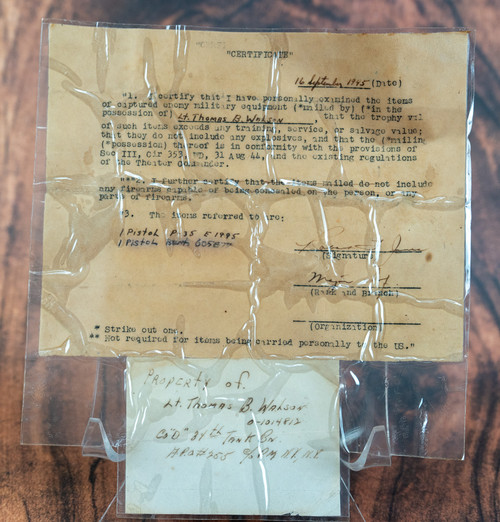 "CERTIFICATE"
16 September, 1945 (Date)
"1. I certify that I have personally examined the items
of captured enemy military equipment (*mailed by) (*in the
possession of) Lt. Thomas B. Walson, that the trophy val
of such items exceeds any training, service, or salvage value;
that they do not include any explosives, and that the (*mailing
(*possession) thereof is in conformity with the provisions of
Sec III, Cir 353, WD, 31 Aug 44, and the existing regulations
of the Theater Commander.
I further certify that the items mailed do not include
any firearms capable of being concealed on the person, or any
parts of firearms.
"3. The items referred to are:
1 Pistol P-35 E 1995
1 Pistol
(Signature)
(Rank and Branch)
(Organization)
* Strike out one.
** Not required for items being carried personally to the US."
Property of.
Lt. Thomas B. Walson
0-1014812
Co "D" Tank Bn.
APO #255 c/o PM N.Y., N.Y.